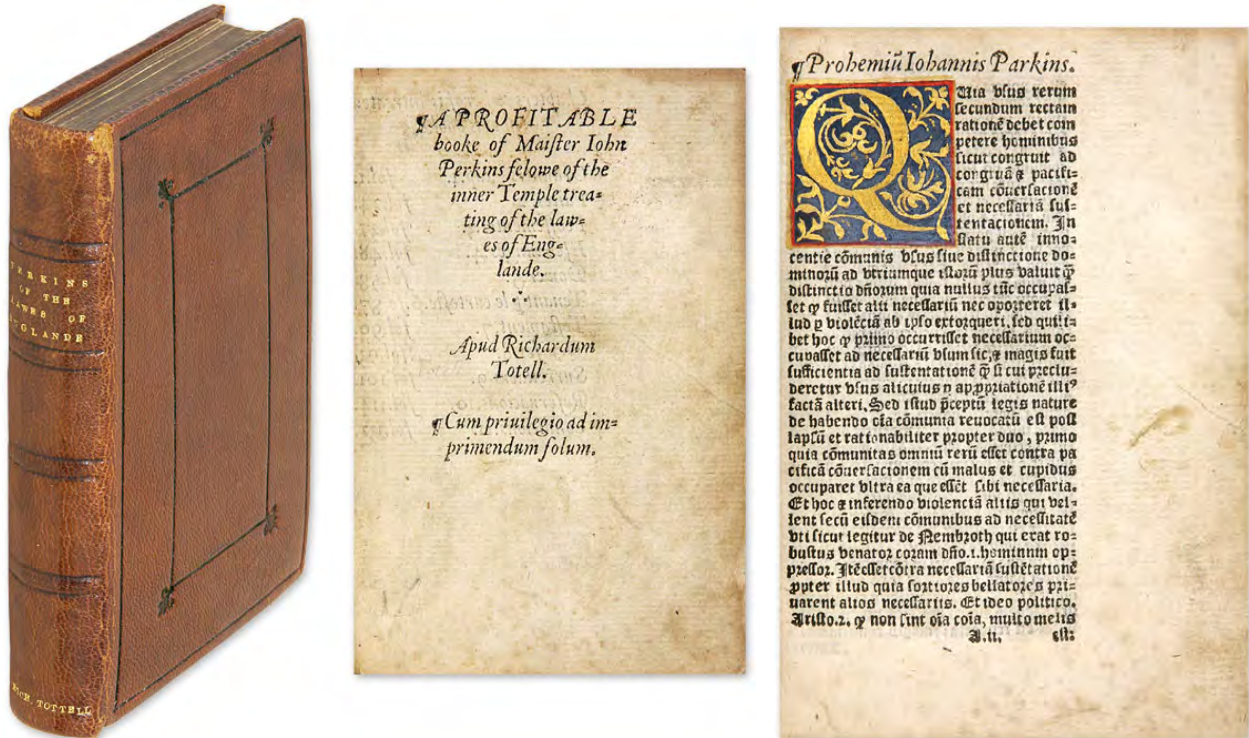 PERKINS
OF THE
LAWES OF
ENGLANDE
RICH. TOTTELL
¶A PROFITABLE
booke of Maiſter Iohn
Perkins felowe of the
inner Temple trea=
ting of the law=
es of Eng=
lande.
Apud Richardum
Totell.
¶Cum priuilegio ad im=
primendum ſolum.
¶Prohemiũ Iohannis Parkins.
QUia vſus rerum
ſecundum rectam
rationẽ debet com
petere hominibus
ſicut congruit ad
congruã ⁊ pacifi=
cam cõuerſacionẽ
et neceſſariã ſuſ=
tentacionem. In
ſtatu autẽ inno=
centie cõmunis vſus ſiue diſtinctione do=
minorũ ad vtriumque iſtorũ plus valuit q̃
diſtinctio dñorum quia nullus tũc occupaſ=
ſet ꝙ fuiſſet alii neceſſariũ nec oporteret il=
lud ꝑ violẽciã ab ipſo extorqueri, ſed quili=
bet hoc ꝙ primo occurriſſet neceſſarium oc=
cupaſſet ad neceſſariũ vſum ſic, ⁊ magis fuit
ſufficientia ad ſuſtentationẽ q̃ ſi cui preclu=
deretur vſus alicuius ꝑ appꝛopriationẽ illiꝰ
factã alteri. Sed iſtud p̃ceptũ legis nature
de habendo oĩa cõmunia reuocatũ eſt poſt
lapſũ et rationabiliter propter duo, primo
quia cõmunitas omniũ rerũ eſſet contra pa
cificã cõuerſacionem cũ malus et cupidus
occuparet vltra ea que eſſẽt ſibi neceſſaria.
Et hoc ⁊ inferendo violenciã aliis qui vel=
lent ſecũ eiſdem cõmunibus ad neceſſitatẽ
vti ſicut legitur de Nembroth qui erat ro=
buſtus venator coram dño.i.hominum op=
preſſor. Itẽ eſſet cõtra neceſſariã ſuſtẽtationẽ
ꝓpter illud quia fortiores bellatores pri=
uarent alios neceſſariis. Et ideo politico.
Ariſto.2. ꝙ non ſint oĩa cõia, multo melis
A.ii. eſt: